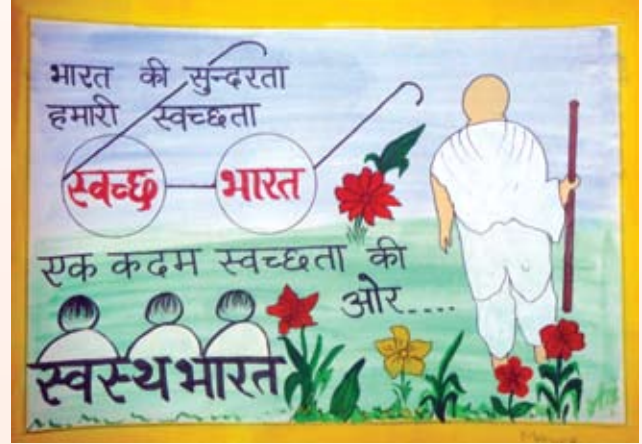 भारत की सुन्दरता
हमारी स्वच्छता
स्वच्छ भारत
एक कदम स्वच्छता की
ओर....
स्वस्थ भारत